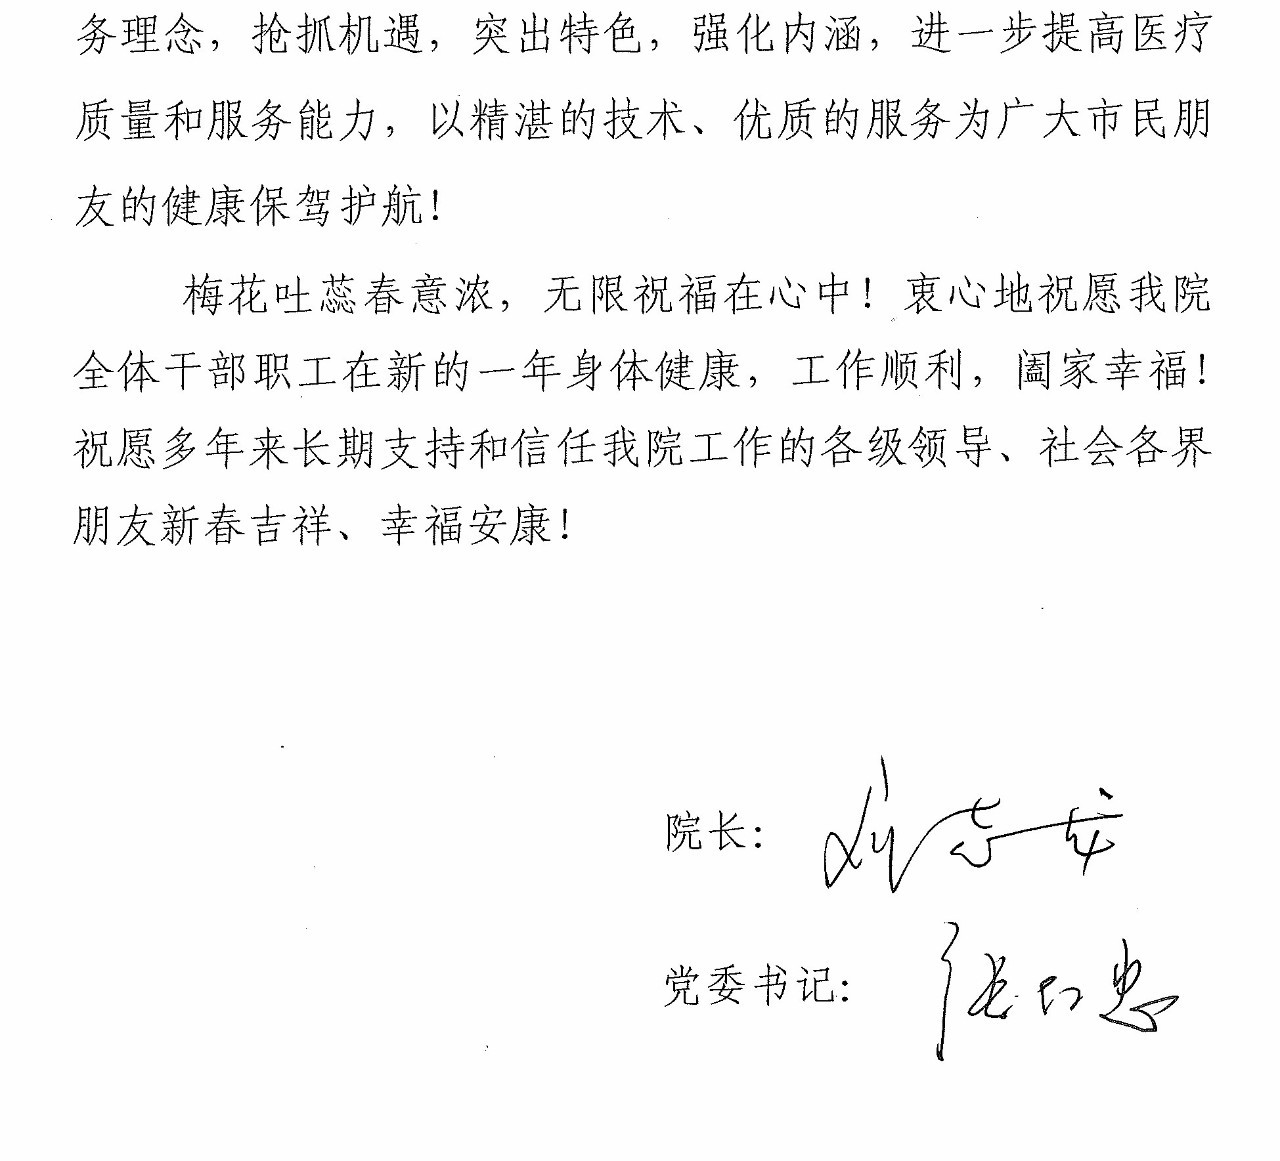 务理念，抢抓机遇，突出特色，强化内涵，进一步提高医疗
质量和服务能力，以精湛的技术、优质的服务为广大市民朋
友的健康保驾护航！
梅花吐蕊春意浓，无限祝福在心中！衷心地祝愿我院
全体干部职工在新的一年身体健康，工作顺利，阖家幸福！
祝愿多年来长期支持和信任我院工作的各级领导、社会各界
朋友新春吉祥、幸福安康！
院长：
党委书记：